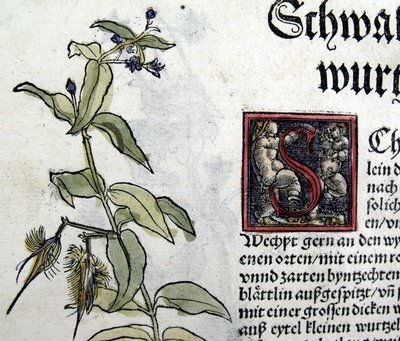 Schwal
wurtz
S
Ch
lein d
nach
solich
en/vn
Wechßt gern an den wy
enen orten/mit einem ro
vnnd zarten byntzechten
blättlin außgespitzt/vñ
mit einer grossen dicken w
auß eytel kleinen wurtzel